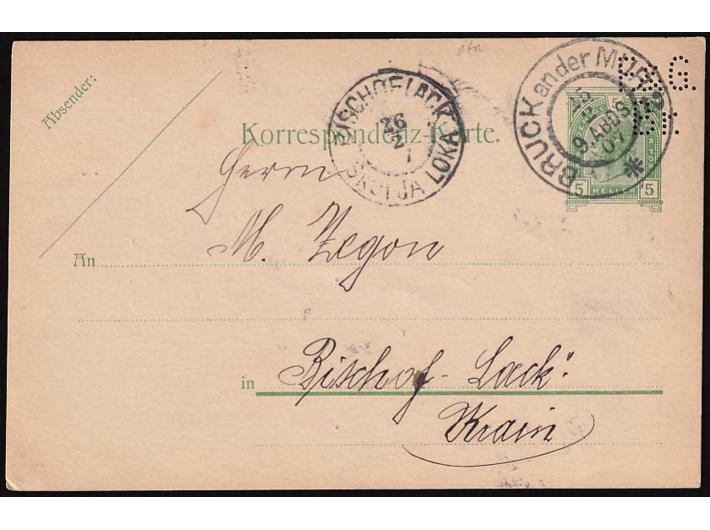 Absender:
BRUCK an der MUR
9.ABDS
07
5 HELLER 5
BISCHOFLACK
26
2
7
ŠKOFJA LOKA
Korrespondenz-Karte.
Herrn
An M. Zegon
in Bischof-Lack.
Krain